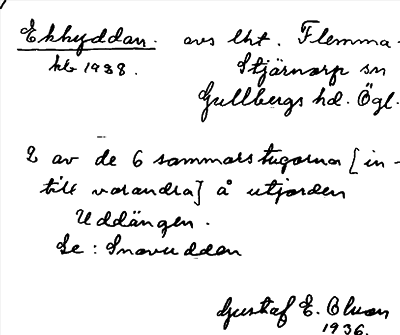 Ekhyddan. avs lht. Flemma-
kb 1938. Stjärnorp sn
Gullbergs hd. Ögl.
2 av de 6 sommarstugorna [in-
till varandra] å utjorden
Uddängen.
Se: Snovudden
Gustaf E. Olson
1936.